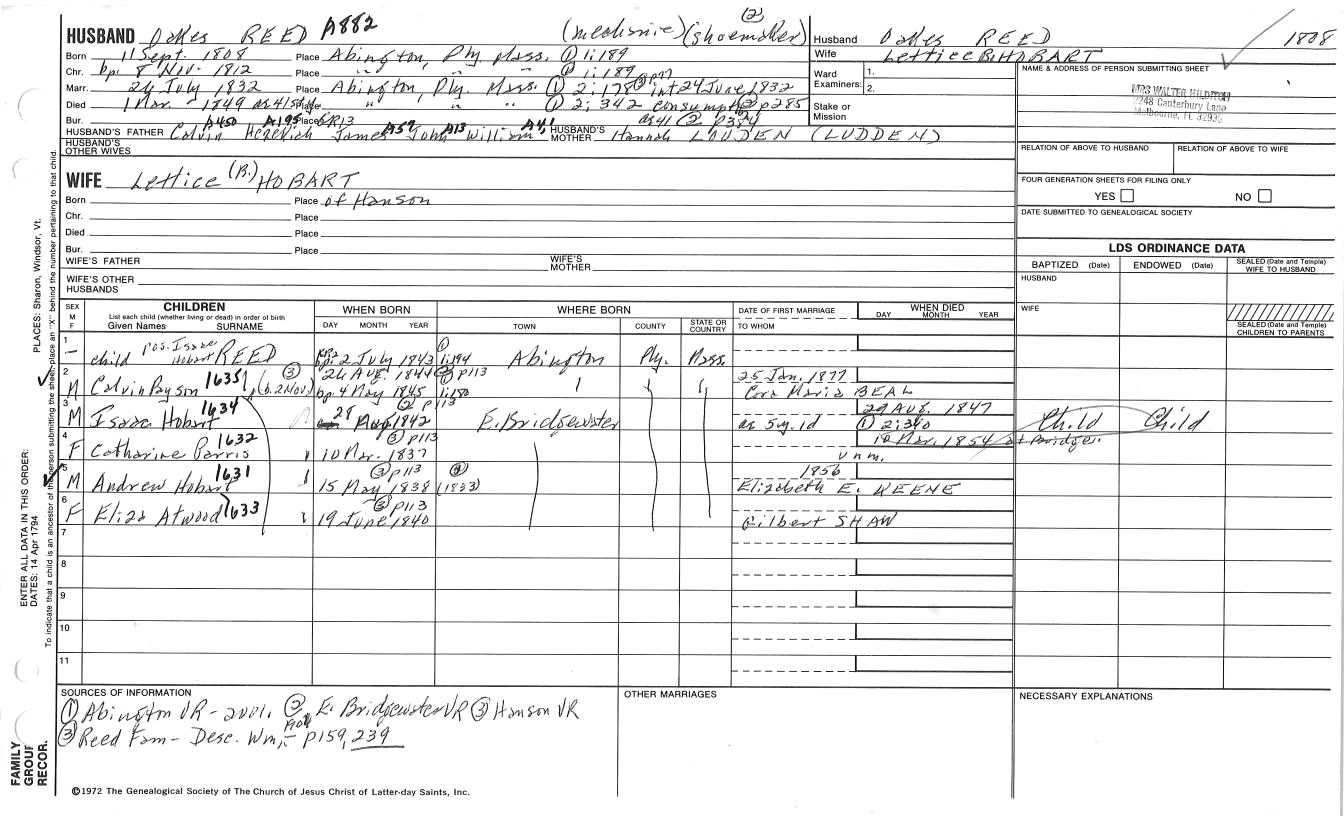 HUSBAND Oakes REED A882 (mechanic) (shoemaker) (2)
Born 11 Sept. 1808 Place Abington, Ply. Mass. ① 1:189
Chr. bp. 8 Nov. 1812 Place " " " ① 1:189
Marr. 24 July 1832 Place Abington, Ply. Mass. ① 2:178 ③ p77 int 24 June 1832
Died 1 Mar. 1849 Place " " ① 2:342 consumpt. p285
Bur. Place GR13 as 41 ② p384
A450 A195 A57 A13 A41
HUSBAND'S FATHER Calvin Hezekiah James John William HUSBAND'S MOTHER Hannah LOUDEN (LUDDEN)
HUSBAND'S OTHER WIVES
Husband Oakes REED 1808
Wife Lettice B. HOBART
Ward Examiners: 1. 2.
Stake or Mission
NAME & ADDRESS OF PERSON SUBMITTING SHEET
MRS WALTER HILDITCH
2248 Canterbury Lane
Melbourne, FL 32935
RELATION OF ABOVE TO HUSBAND RELATION OF ABOVE TO WIFE
FOUR GENERATION SHEETS FOR FILING ONLY
YES NO
DATE SUBMITTED TO GENEALOGICAL SOCIETY
WIFE Lettice (B.) HOBART
Born Place of Hanson
Chr. Place
Died Place
Bur. Place
WIFE'S FATHER WIFE'S MOTHER
WIFE'S OTHER HUSBANDS
LDS ORDINANCE DATA
BAPTIZED (Date) ENDOWED (Date) SEALED (Date and Temple) WIFE TO HUSBAND
HUSBAND
WIFE
SEALED (Date and Temple) CHILDREN TO PARENTS
SEX M F
CHILDREN
List each child (whether living or dead) in order of birth
Given Names SURNAME
WHEN BORN DAY MONTH YEAR
WHERE BORN TOWN COUNTY STATE OR COUNTRY
DATE OF FIRST MARRIAGE TO WHOM
WHEN DIED DAY MONTH YEAR
1 — child pos. Isaac Hobart REED bp. 2 July 1843 ① 1:194 Abington Ply. Mass.
2 M Calvin Payson 16351 (b. 2 Nov.) ③ 26 Aug. 1844 ③ p113 bp. 4 May 1845 ① 1:190 25 Jan. 1877 Cora Maria BEAL
3 M Isaac Hobart 1634 28 Aug 1842 ② p113 E. Bridgewater as 5y. 1d 29 Aug. 1847 ① 2:340 Child Child
4 F Catharine Parris 1632 10 Mar. 1837 ③ p113 10 Mar. 1854 at Bridge. unm.
5 M Andrew Hobart 1631 15 May 1838 ③ p113 (1833) 1856 Elizabeth E. KEENE
6 F Eliza Atwood 1633 19 June 1840 ③ p113 Gilbert SHAW
7
8
9
10
11
SOURCES OF INFORMATION
① Abington VR - 2 vol. ② E. Bridgewater VR ③ Hanson VR
③ Reed Fam - Desc. Wm, - 1901 p159, 239
OTHER MARRIAGES
NECESSARY EXPLANATIONS
©1972 The Genealogical Society of The Church of Jesus Christ of Latter-day Saints, Inc.
FAMILY GROUP RECOR.
ENTER ALL DATA IN THIS ORDER:
DATES: 14 Apr 1794
PLACES: Sharon, Windsor, Vt.
To indicate that a child is an ancestor of the person submitting the sheet, place an "X" behind the number pertaining to that child.